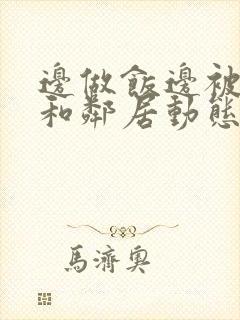 邊做飯邊被
和鄰居動態
馬濟奧